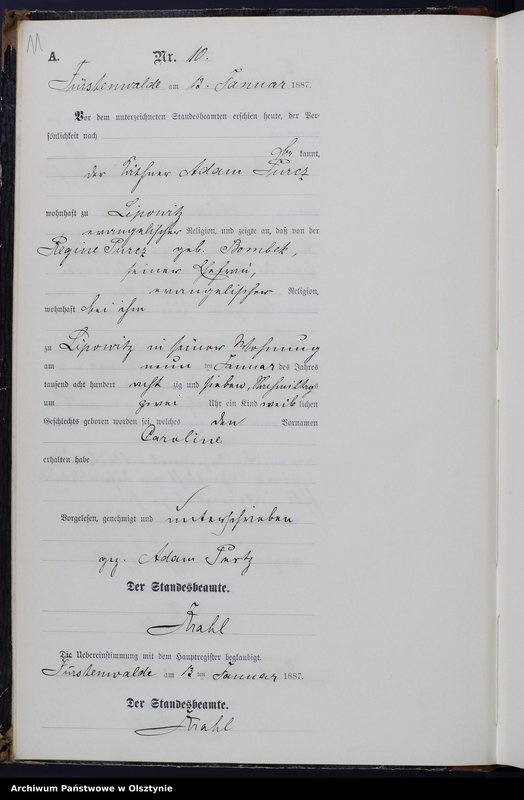 11
A.
Nr. 10.
Fürstenwalde am 13. Januar 1887.
Vor dem unterzeichneten Standesbeamten erschien heute, der Per-
sönlichkeit nach
kannt,
der Käthner Adam Purcz
wohnhaft zu Lipowitz
evangelischer Religion, und zeigte an, daß von der
Regine Purcz geb. Bombek,
seiner Ehefrau,
evangelischer Religion,
wohnhaft bei ihm
zu Lipowitz in seiner Wohnung
am neun ten Januar des Jahres
tausend acht hundert acht zig und sieben, Nachmittags
um zwei Uhr ein Kind weib lichen
Geschlechts geboren worden sei, welches den Vornamen
Caroline
erhalten habe
Vorgelesen, genehmigt und unterschrieben
gez. Adam Purtz
Der Standesbeamte.
Krahl
Die Uebereinstimmung mit dem Hauptregister beglaubigt.
Fürstenwalde am 13 ten Januar 1887.
Der Standesbeamte.
Krahl
Archiwum Państwowe w Olsztynie